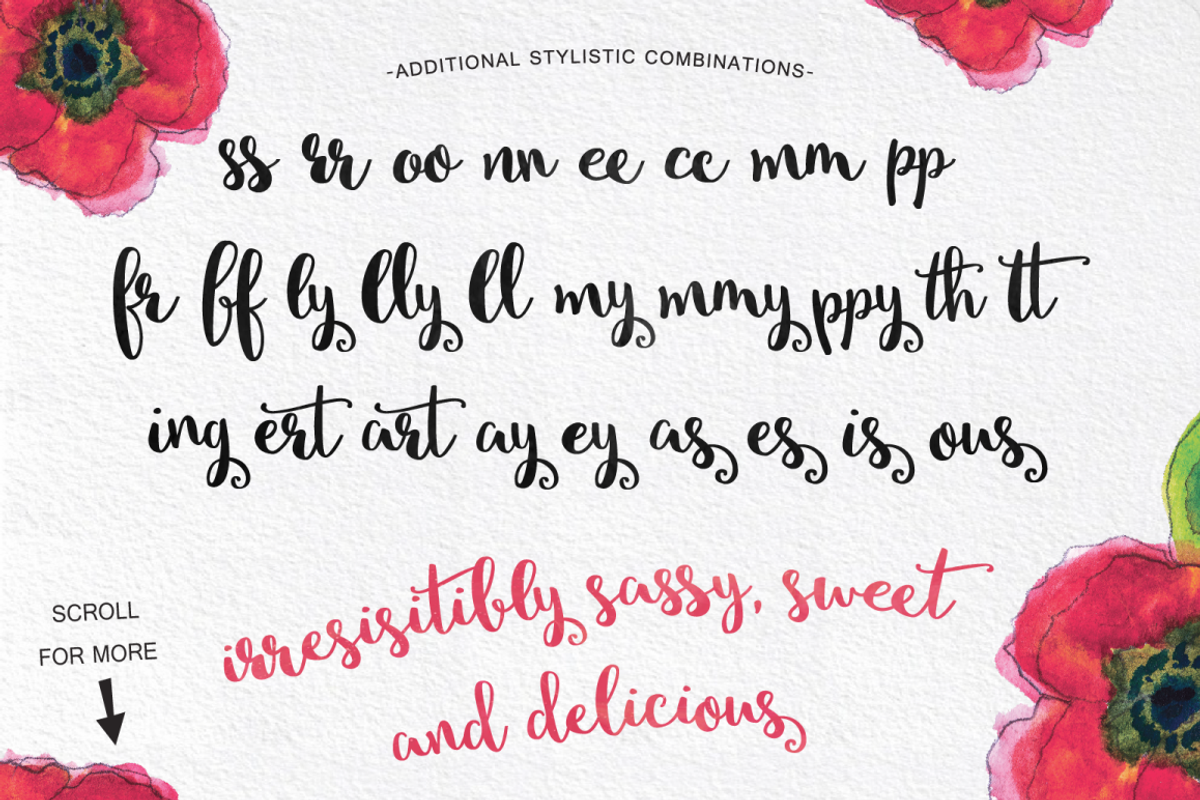 -ADDITIONAL STYLISTIC COMBINATIONS-
ss rr oo nn ee cc mm pp
fr ff ly lly ll my mmy ppy th tt
ing ert art ay ey as es is ous
irresisitibly sassy, sweet
and delicious
SCROLL
FOR MORE